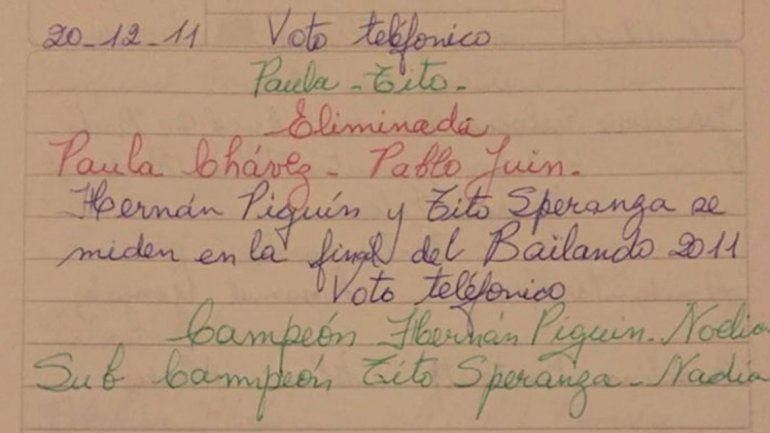 20-12-11 Voto teléfonico
Paula - Tito -
Eliminada
Paula Chávez - Pablo Juin.
Hernán Piquín y Tito Speranza se
miden en la final del Bailando 2011
Voto teléfonico
Campeón Hernán Piquin - Noelia
Sub Campeón Tito Speranza - Nadia